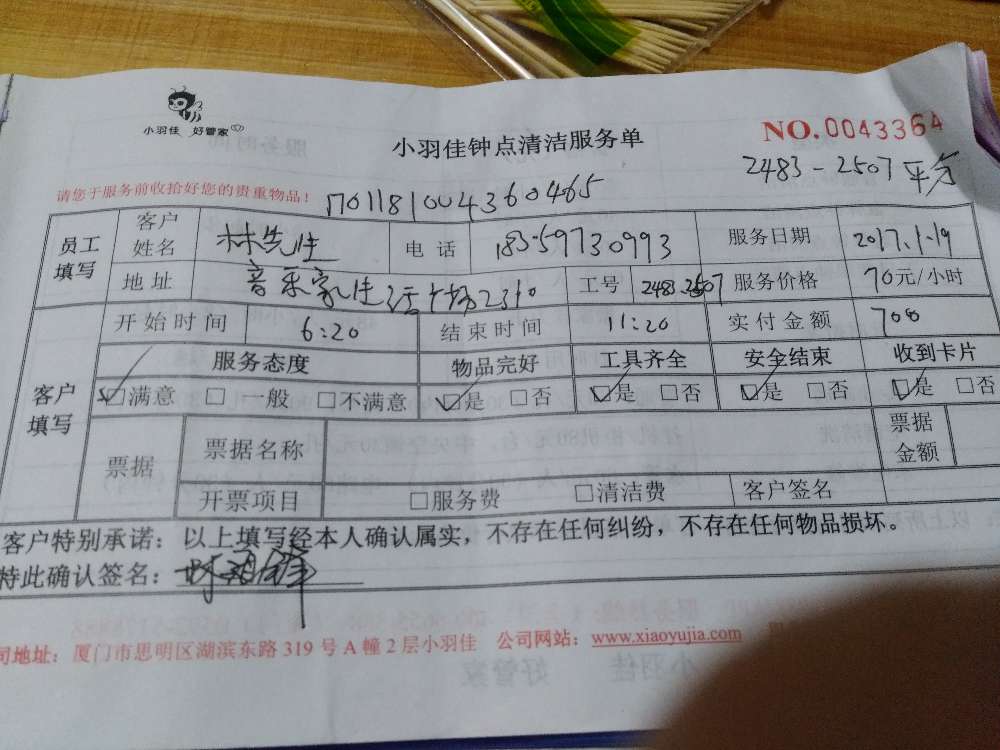 小羽佳 好管家
小羽佳钟点清洁服务单
NO.0043364
2483-2507平分
请您于服务前收拾好您的贵重物品！
1701181004360465
员工填写 客户姓名 林先生 电话 18359730993 服务日期 2017.1.19
地址 音乐家生活广场2310 工号 2483.2507 服务价格 70元/小时
客户填写 开始时间 6:20 结束时间 11:20 实付金额 708
服务态度 物品完好 工具齐全 安全结束 收到卡片
☑满意 □一般 □不满意 ☑是 □否 ☑是 □否 ☑是 □否 ☑是 □否
票据 票据名称 票据金额
开票项目 □服务费 □清洁费 客户签名
客户特别承诺：以上填写经本人确认属实，不存在任何纠纷，不存在任何物品损坏。
特此确认签名：
司地址：厦门市思明区湖滨东路319号A幢2层小羽佳 公司网站：www.xiaoyujia.com